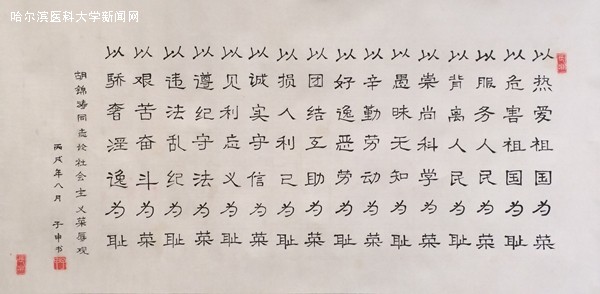 哈尔滨医科大学新闻网
以热爱祖国为荣
以危害祖国为耻
以服务人民为荣
以背离人民为耻
以崇尚科学为荣
以愚昧无知为耻
以辛勤劳动为荣
以好逸恶劳为耻
以团结互助为荣
以损人利己为耻
以诚实守信为荣
以见利忘义为耻
以遵纪守法为荣
以违法乱纪为耻
以艰苦奋斗为荣
以骄奢淫逸为耻
胡錦涛同志论社会主义荣辱观
丙戌年八月 子申书